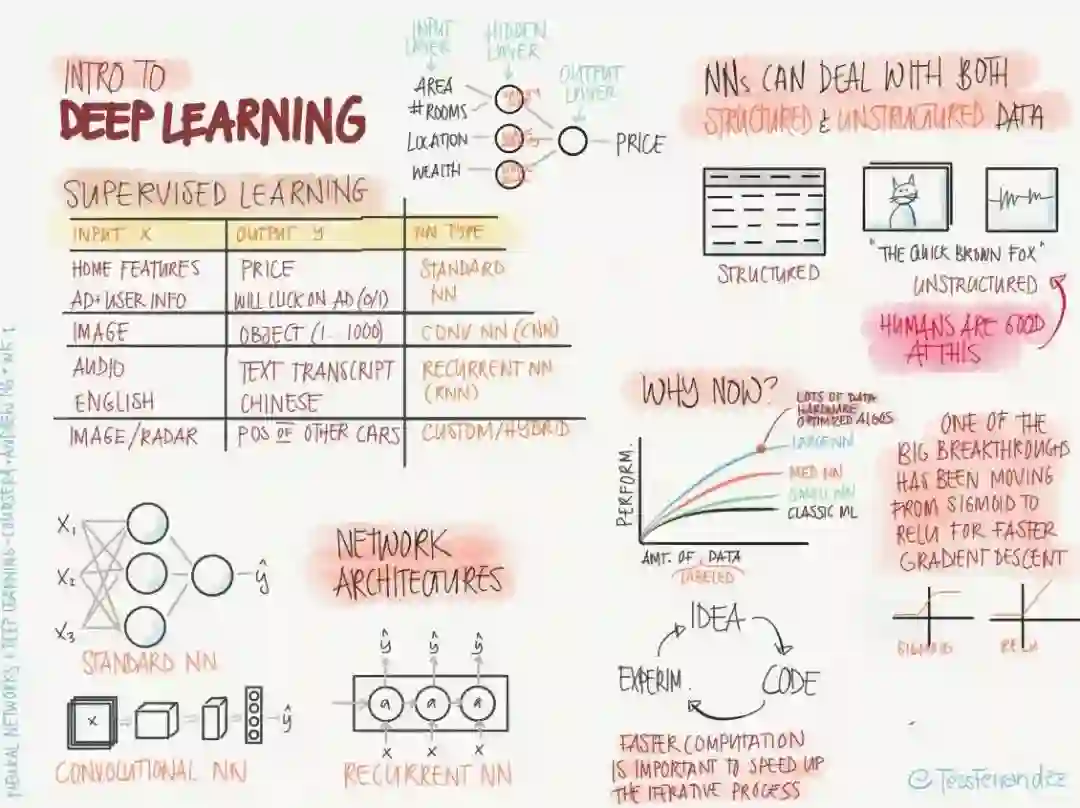 INTRO TO
DEEP LEARNING
INPUT LAYER
HIDDEN LAYER
OUTPUT LAYER
AREA
# ROOMS
LOCATION
WEALTH
PRICE
SUPERVISED LEARNING
INPUT X OUTPUT Y NN TYPE
HOME FEATURES PRICE STANDARD
AD+USER INFO WILL CLICK ON AD (0/1) NN
IMAGE OBJECT (1...1000) CONV NN (CNN)
AUDIO TEXT TRANSCRIPT RECURRENT NN
ENGLISH CHINESE (RNN)
IMAGE/RADAR POS OF OTHER CARS CUSTOM/HYBRID
NNs CAN DEAL WITH BOTH
STRUCTURED & UNSTRUCTURED DATA
STRUCTURED
"THE QUICK BROWN FOX"
UNSTRUCTURED
HUMANS ARE GOOD
AT THIS
WHY NOW?
LOTS OF DATA
HARDWARE
OPTIMIZED ALGOS
LARGE NN
MED NN
SMALL NN
CLASSIC ML
PERFORM.
AMT. OF DATA
LABELED
ONE OF THE
BIG BREAKTHROUGHS
HAS BEEN MOVING
FROM SIGMOID TO
RELU FOR FASTER
GRADIENT DESCENT
SIGMOID RELU
X₁
X₂
X₃
ŷ
STANDARD NN
NETWORK
ARCHITECTURES
X
ŷ
CONVOLUTIONAL NN
ŷ ŷ ŷ
a a a
X X X
RECURRENT NN
IDEA
CODE
EXPERIM.
FASTER COMPUTATION
IS IMPORTANT TO SPEED UP
THE ITERATIVE PROCESS
@TessFerrandez
NEURAL NETWORKS & DEEP LEARNING-COURSERA ANDREW NG